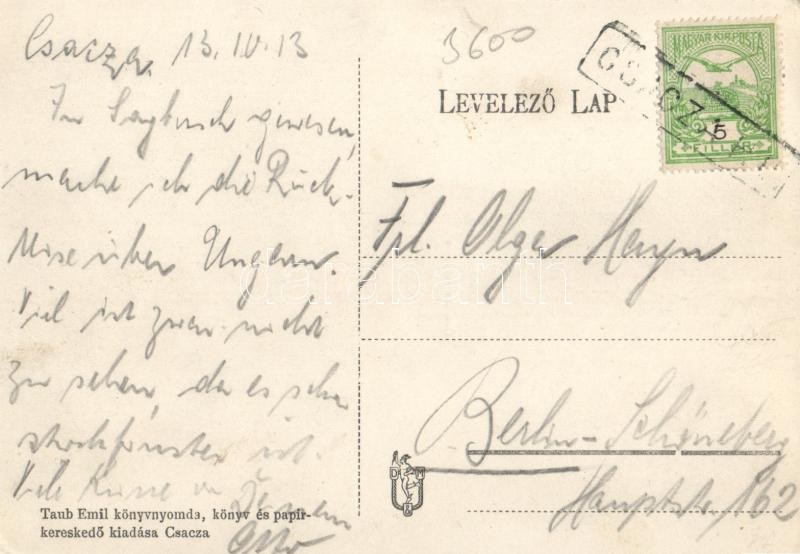 Csacza, 13.IV.13
In Saybusch gewesen,
mache ich die Rück-
reise über Ungarn.
Viel ist zwar nicht
zu sehen, da es schon
stockfinster ist.
Viele Küsse
Otto
Taub Emil könyvnyomda, könyv és papir-
kereskedő kiadása Csacza
3600
LEVELEZŐ LAP
MAGYAR KIR. POSTA
5
FILLÉR
CSACZA
Frl. Olga Heyn
Berlin-Schöneberg
Hauptstr. 162
darabanth